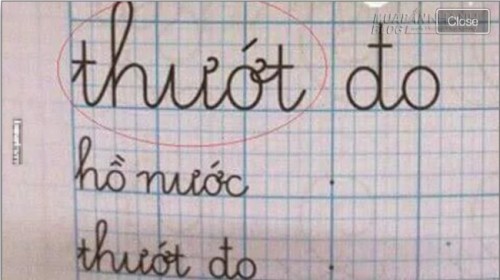 Close
thướt đo
hồ nước
thướt đo